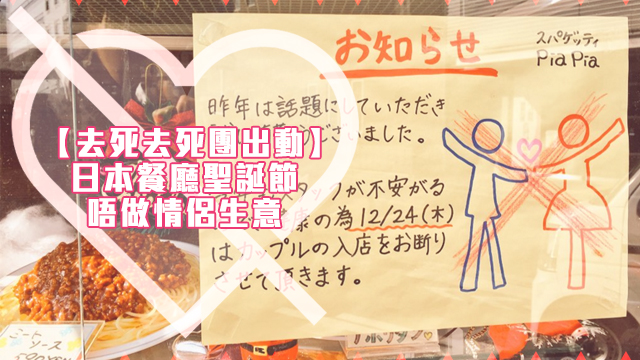 お知らせ
スパゲッティ
Pia Pia
昨年は話題にしていただき
ございました。
スタッフが不安がる
康の為12/24(木)
はカップルの入店をお断り
させて頂きます。
【去死去死團出動】
日本餐廳聖誕節
唔做情侶生意
ミート
ソース